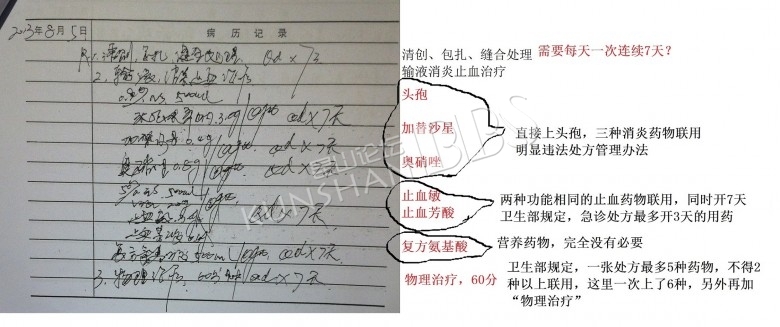 2013年8月5日
病历记录
1.清创、包扎、缝合处理 Qd×7天
2.输液、消炎止血治疗
0.9% NS 500ml
qd×7天
qd×7天
qd×7天
5% 500ml
止血敏
qd×7天
止血芳酸
复方氨基酸 500ml qd×7天
3.物理治疗, 60分 qd×7天
昆山论坛
KUNSHAN BBS
清创、包扎、缝合处理 需要每天一次连续7天?
输液消炎止血治疗
头孢
加替沙星
奥硝唑
直接上头孢，三种消炎药物联用
明显违法处方管理办法
止血敏
止血芳酸
两种功能相同的止血药物联用，同时开7天
卫生部规定，急诊处方最多开3天的用药
复方氨基酸
营养药物，完全没有必要
物理治疗，60分
卫生部规定，一张处方最多5种药物，不得2
种以上联用，这里一次上了6种，另外再加
“物理治疗”